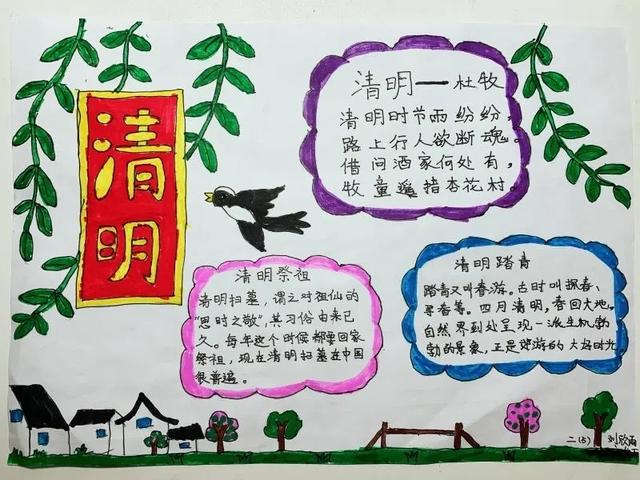 清明
清明——杜牧
清明时节雨纷纷，
路上行人欲断魂。
借问酒家何处有，
牧童遥指杏花村。
清明祭祖
清明扫墓，谓之对祖仙的
"思时之敬"，其习俗由来已
久。每年这个时候都要回家
祭祖，现在清明扫墓在中国
很普遍。
清明踏青
踏青又叫春游。古时叫探春、
寻春等。四月清明，春回大地。
自然界到处呈现一派生机勃
勃的景象，正是郊游的大好时光
二(5) 刘欣雨